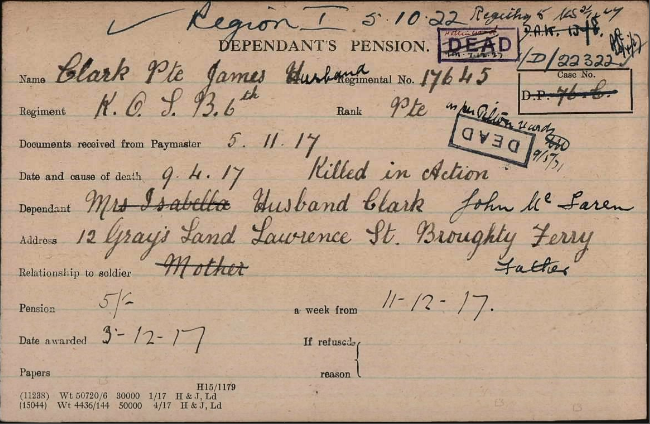 Region I 5.10.22
DEPENDANT'S PENSION.
DEAD
/D/22322
Name Clark Pte James Husband Regimental No. 17645
Case No.
Regiment K.O.S.B. 6th Rank Pte
DEAD
Documents received from Paymaster 5.11.17
Date and cause of death 9.4.17 Killed in Action
Dependant Mrs Isabella Husband Clark John Mc Laren
Address 12 Gray's Land Lawrence St. Broughty Ferry
Relationship to soldier Mother Father
Pension 5/- a week from 11-12-17.
Date awarded 3-12-17 If refused
Papers reason
H15/1179
(11238) Wt 50720/6 30000 1/17 H & J, Ld
(15044) Wt 4436/144 50000 4/17 H & J, Ld